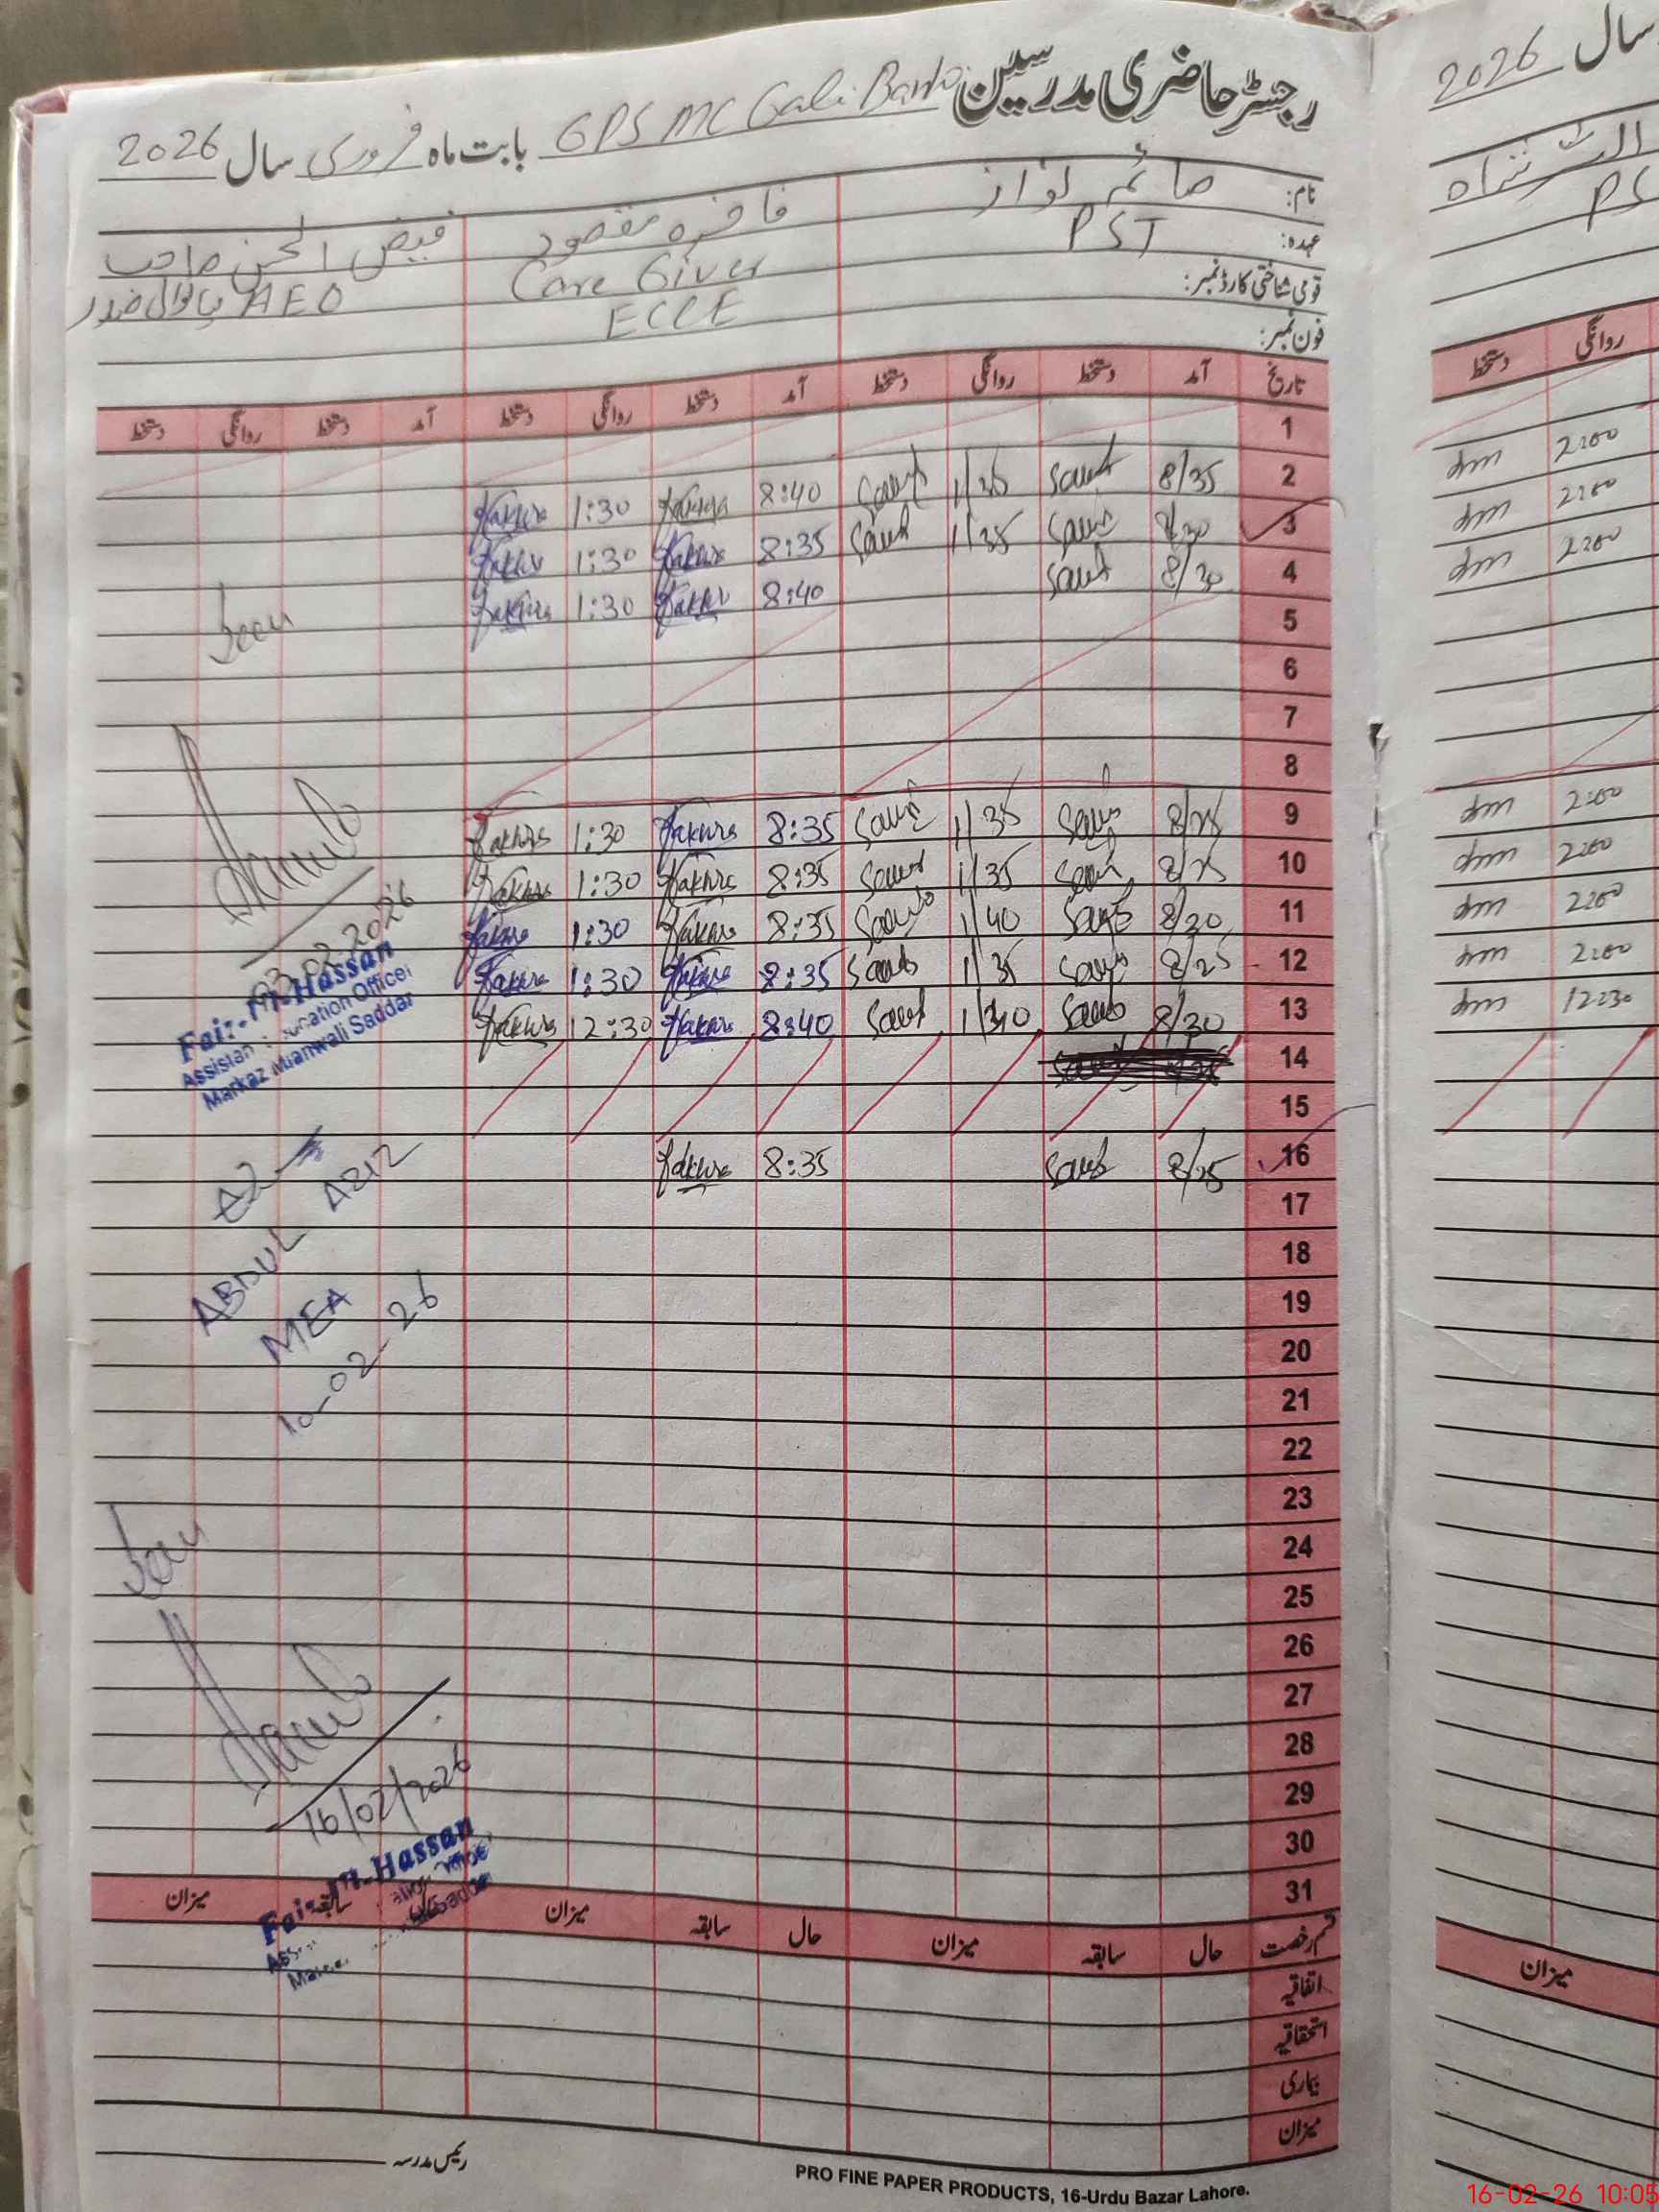 رجسٹر حاضری مدرسین GPS MC Gali Barto بابت ماہ فروری سال 2026
نام: صائمہ نواز
فاخرہ مقصود
فیض الحسن صاحب
عہدہ: PST
Care Giver
AEO
قومی شناختی کارڈ نمبر:
ECCE
فون نمبر:
تاریخ آمد دستخط روانگی دستخط آمد دستخط روانگی دستخط آمد دستخط روانگی دستخط
1
2 8/35 8:40 Fakhra 1:30 Fakhra
3 8/30 1/35 8:35 Fakhra 1:30 Fakhra
4 8/30 8:40 Fakhra 1:30 Fakhra
5
Seen
6
7
8
9 8/25 1/35 8:35 Fakhra 1:30 Fakhra
10 8/25 1/35 8:35 Fakhra 1:30 Fakhra
11 8/30 1/40 8:35 Fakhra 1:30 Fakhra
12 8/25 1/35 8:35 Fakhra 1:30 Fakhra
13 8/30 8:40 Fakhra 12:30 Fakhra
03.02.2026
Hassan
Assistan Education Officer
Markaz Mianwali Saddar
14
15
16 8/25 8:35 Fakhra
17
ABDUL AZIZ
MEA
10-02-26
18
19
20
21
22
23
24
Seen
25
26
27
28
16/02/2026
29
30
31
Hassan
قسم رخصت حال سابقہ میزان حال سابقہ میزان سابقہ میزان
اتفاقیہ
استحقاقیہ
بیماری
میزان
رئیس مدرسہ
PRO FINE PAPER PRODUCTS, 16-Urdu Bazar Lahore.
سال 2026
PS
روانگی دستخط
2:00
2:00
2:00
2:00
2:00
2:00
2:00
12:30
میزان
16-02-26 10:05